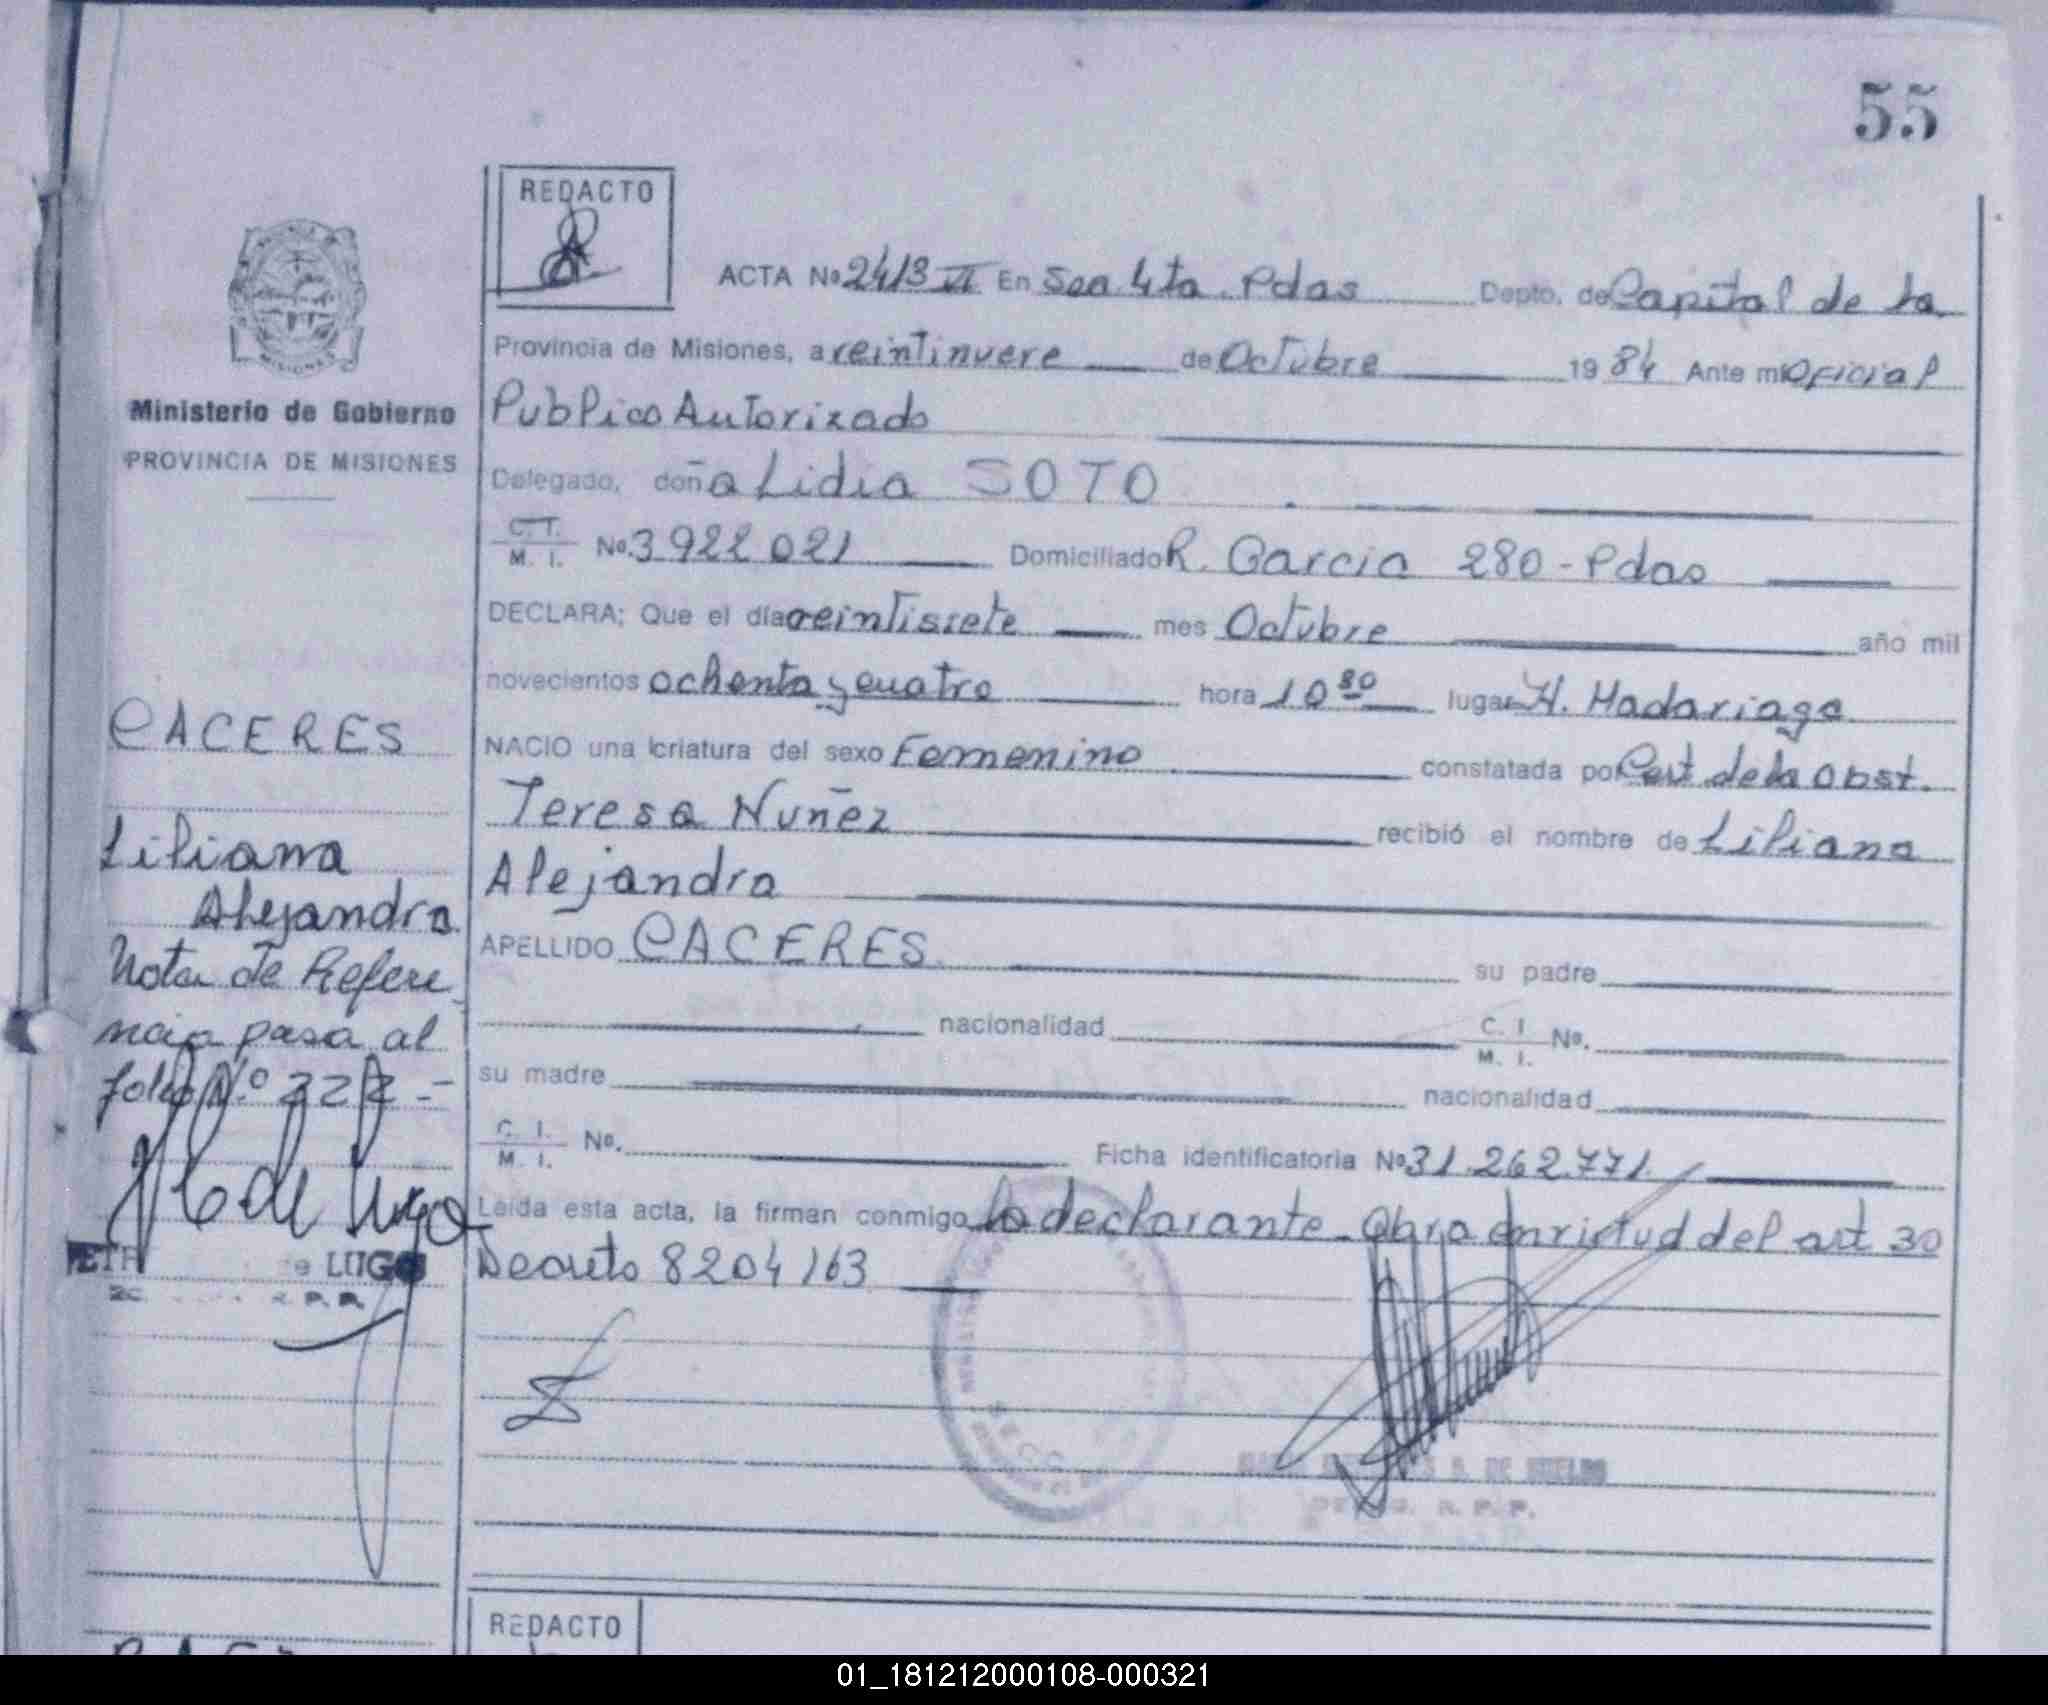 55
REDACTO
ACTA No 2413 VI En Sea 4ta. Pdas Depto. de Capital de la
Provincia de Misiones, a veintinueve de Octubre 1984 Ante mi Oficial
Ministerio de Gobierno
Publico Autorizado
PROVINCIA DE MISIONES
Delegado, doña Lidia SOTO
C. I. M. I. No. 3922021 Domiciliado R. Garcia 280 - Pdas
DECLARA; Que el día veintisiete mes Octubre año mil
novecientos ochenta y cuatro hora 10 30 lugar H. Madariaga
CACERES
NACIO una criatura del sexo Femenino constatada por Cert de la Obst.
Teresa Nuñez recibió el nombre de Liliana
Liliana
Alejandra
Alejandra
APELLIDO CACERES su padre
Nota de Refere
nacionalidad C. I. M. I. No.
ncia pasa al
folio N.º 222 -
su madre nacionalidad
C. I. M. I. No. Ficha identificatoria No 31.262.771
Leída esta acta, la firman conmigo la declarante. Obra en virtud del art 30
LUGO
Decreto 8204/63
R. P. P.
REDACTO
01_181212000108-000321